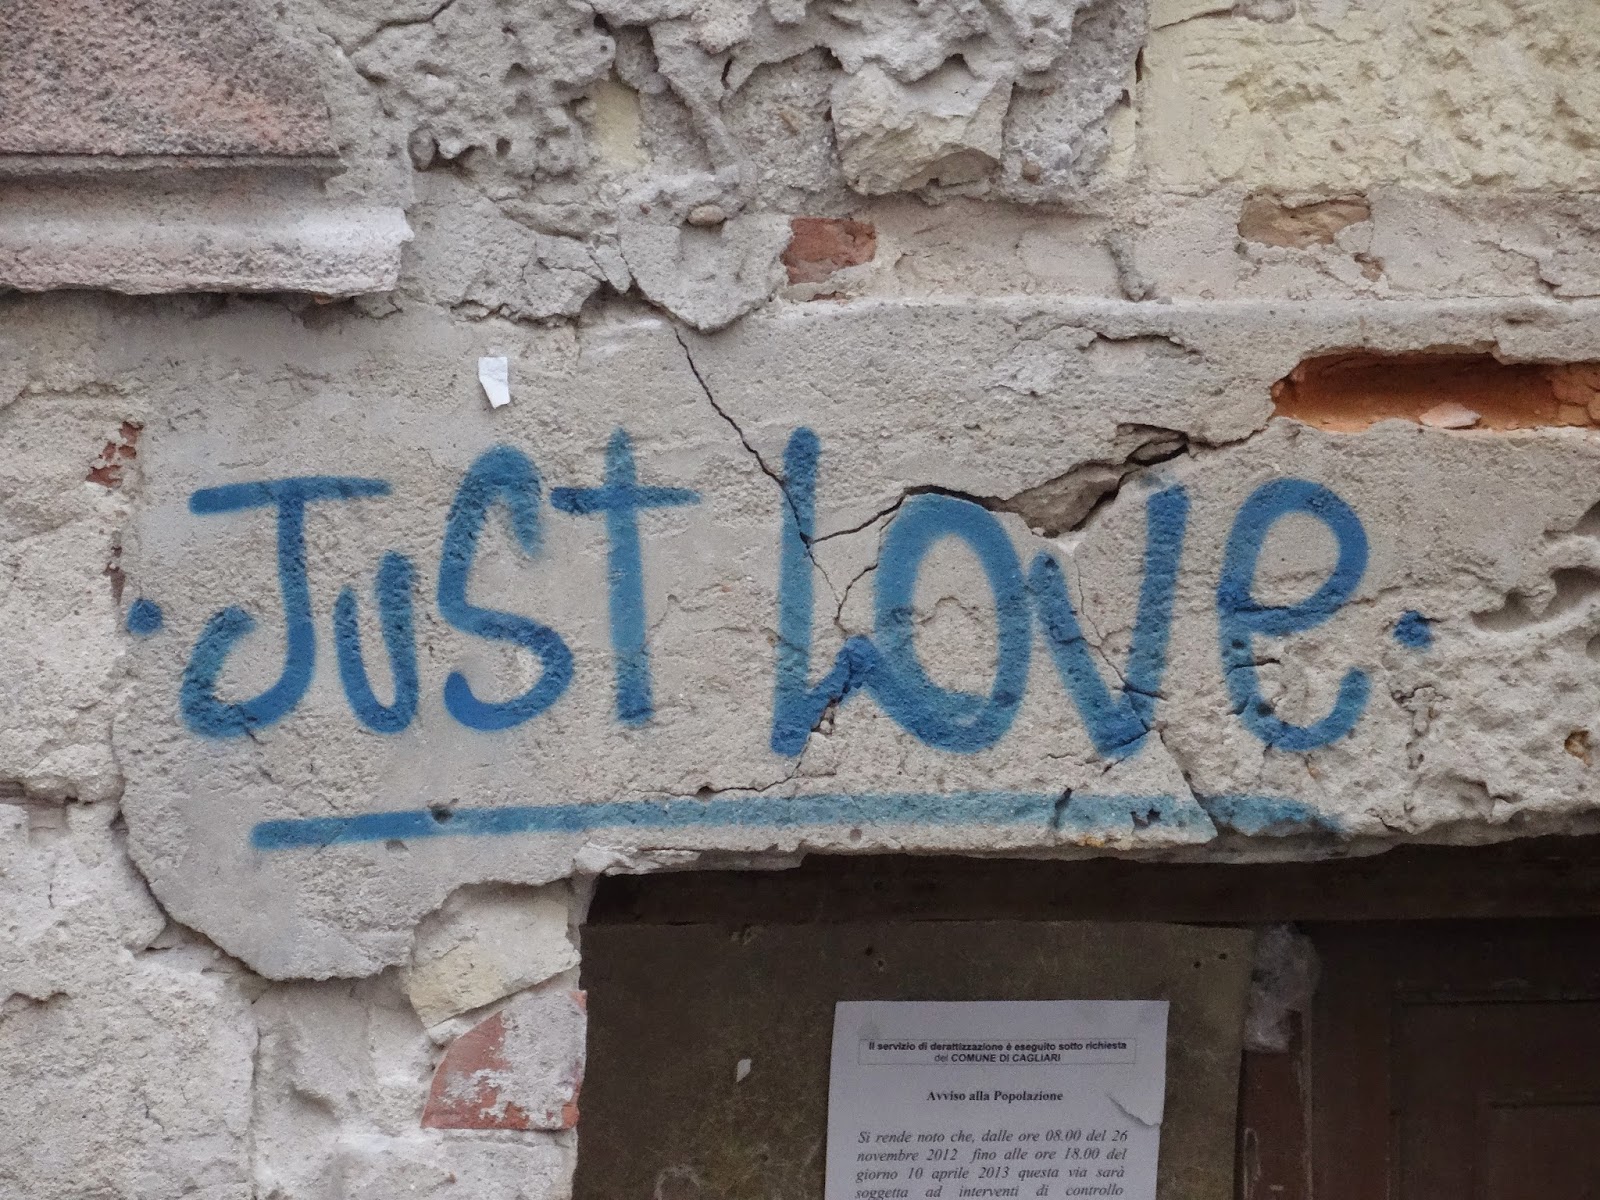 . Just Love .
Il servizio di derattizzazione è eseguito sotto richiesta
del COMUNE DI CAGLIARI
Avviso alla Popolazione
Si rende noto che, dalle ore 08.00 del 26
novembre 2012 fino alle ore 18.00 del
giorno 10 aprile 2013 questa via sarà
soggetta ad interventi di controllo